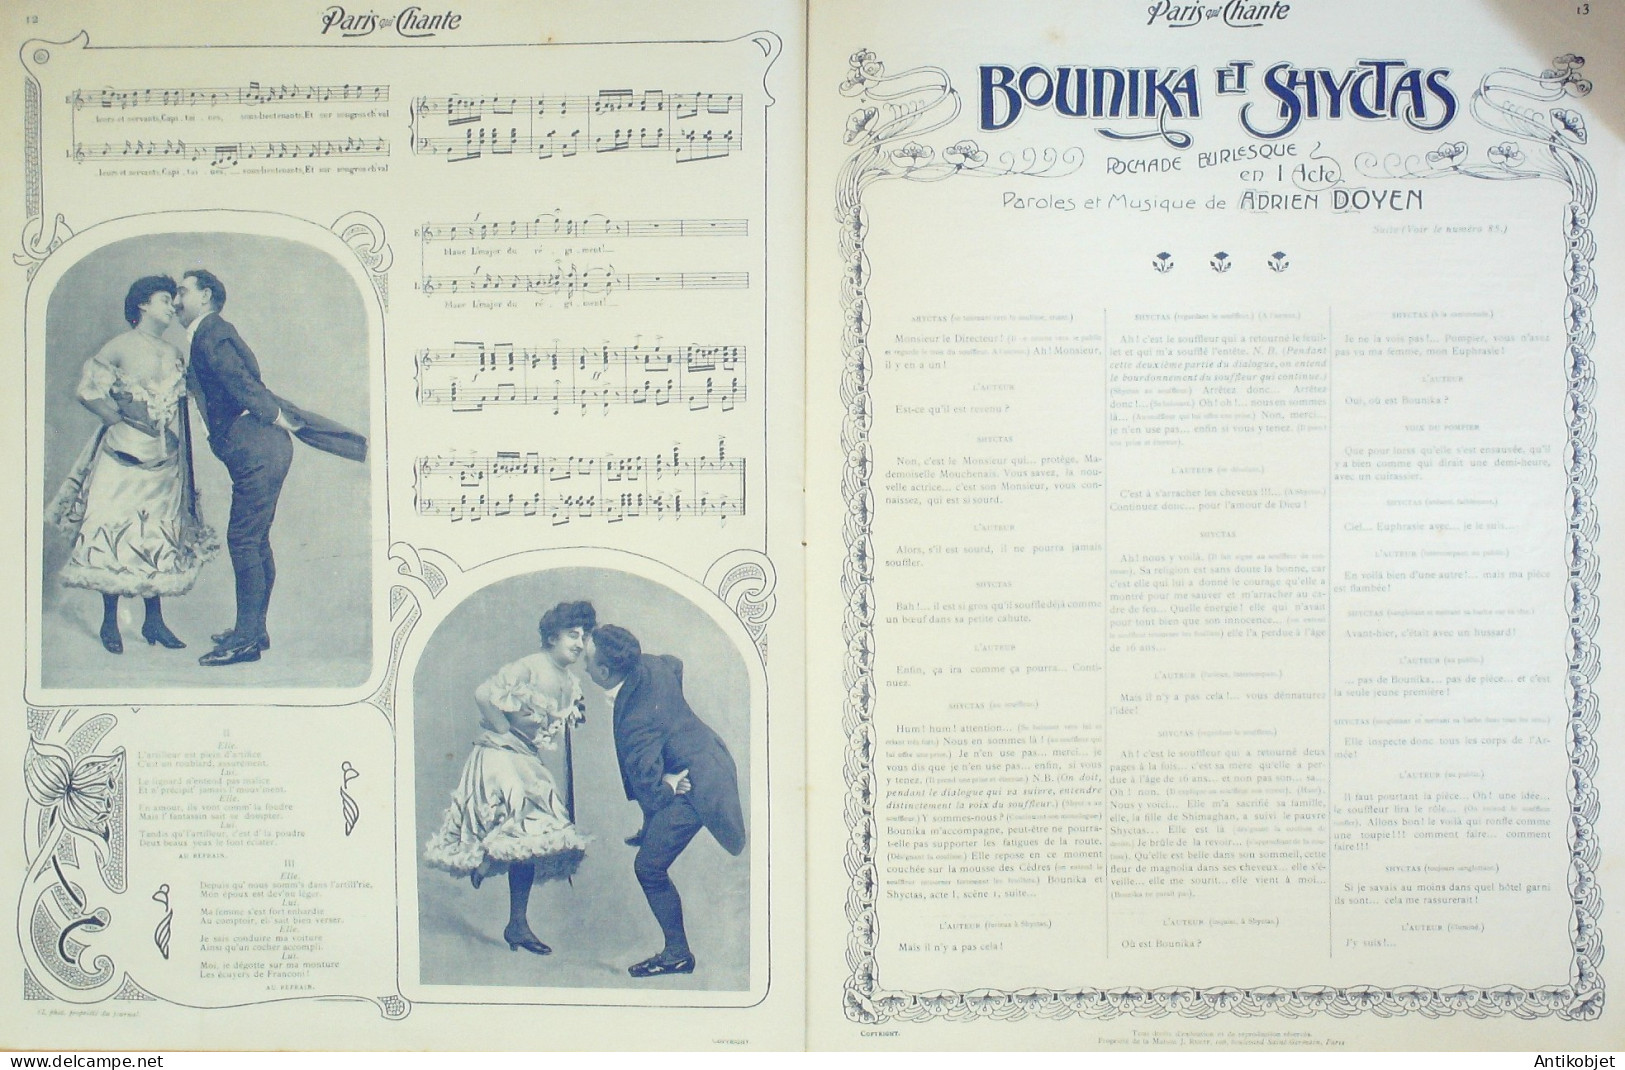 12
Paris qui Chante
leurs et servants, Capi. tai. nes, sous-lieutenants, Et sur son gros ch'val
leurs et servants, Capi. tai. nes, sous-lieutenants, Et sur son gros ch'val
blanc L'major du ré. gi. ment!
blanc L'major du ré. gi. ment!
II
Elle.
L'artilleur est plein d'artifice
C'est un roublard, assurément.
Lui.
Le lignard n'entend pas malice
Et s' précipit' jamais l'mouv'ment.
Elle.
En amour, ils vont comm' la foudre
Mais l' fantassin sait se dompter.
Lui.
Tandis qu' l'artilleur, c'est d' la poudre
Deux beaux yeux le font éclater.
AU REFRAIN.
III
Elle.
Depuis qu' nous somm's dans l'artill'rie,
Mon époux est dev'nu léger.
Lui.
Ma femme s'est fort enhardie
Au comptoir, ell' sait bien verser.
Elle.
Je sais conduire ma voiture
Ainsi qu'un cocher accompli.
Lui.
Moi, je dégotte sur ma monture
Les écuyers de Franconi!
AU REFRAIN.
phot. propriété du journal.
COPYRIGHT
Paris qui Chante
13
BOUNIKA ET SHYCTAS
POCHADE BURLESQUE
en 1 Acte
Paroles et Musique de ADRIEN DOYEN
Suite (Voir le numéro 85.)
SHYCTAS
Monsieur le Directeur!
Ah! Monsieur,
il y en a un!
L'AUTEUR
Est-ce qu'il est revenu?
SHYCTAS
Non, c'est le Monsieur qui... protège, Ma-
demoiselle Mouchenais. Vous savez, la nou-
velle actrice... c'est son Monsieur, vous con-
naissez, qui est si sourd.
L'AUTEUR
Alors, s'il est sourd, il ne pourra jamais
souffler.
SHYCTAS
Bah!... il est si gros qu'il souffle déjà comme
un bœuf dans sa petite cahute.
L'AUTEUR
Enfin, ça ira comme ça pourra... Conti-
nuez.
SHYCTAS (au souffleur.)
Hum! hum! attention...
Nous en sommes là!
Je n'en use pas... merci... je
vous dis que je n'en use pas... enfin, si vous
y tenez. N.B. (On doit,
pendant le dialogue qui va suivre, entendre
distinctement la voix du souffleur.)
Y sommes-nous?
Bounika m'accompagne, peut-être ne pourra-
t-elle pas supporter les fatigues de la route.
Elle repose en ce moment
couchée sur la mousse des Cèdres
Bounika et
Shyctas, acte 1, scène 1, suite...
L'AUTEUR
Mais il n'y a pas cela!
SHYCTAS (regardant le souffleur.)
Ah! c'est le souffleur qui a retourné le feuil-
let et qui m'a soufflé l'entête. N. B. (Pendant
cette deuxième partie du dialogue, on entend
le bourdonnement du souffleur qui continue.)
Arrêtez donc... Arrêtez
donc!... Oh! oh!... nous en sommes
là... Non, merci...
je n'en use pas... enfin si vous y tenez.
L'AUTEUR
C'est à s'arracher les cheveux!!!...
Continuez donc... pour l'amour de Dieu!
SHYCTAS
Ah! nous y voilà.
Sa religion est sans doute la bonne, car
c'est elle qui lui a donné le courage qu'elle a
montré pour me sauver et m'arracher au ca-
dre de feu... Quelle énergie! elle qui n'avait
pour tout bien que son innocence...
elle l'a perdue à l'âge
de 16 ans...
L'AUTEUR
Mais il n'y a pas cela!... vous dénaturez
l'idée!
SHYCTAS (regardant le souffleur.)
Ah! c'est le souffleur qui a retourné deux
pages à la fois... c'est sa mère qu'elle a per-
due à l'âge de 16 ans... et non pas son... sa...
Oh! non.
Nous y voici... Elle m'a sacrifié sa famille,
elle, la fille de Shimaghan, a suivi le pauvre
Shyctas... Elle est là
Je brûle de la revoir...
Qu'elle est belle dans son sommeil, cette
fleur de magnolia dans ses cheveux... elle s'é-
veille... elle me sourit... elle vient à moi...
(Bounika ne paraît pas).
L'AUTEUR
Où est Bounika?
SHYCTAS
Je ne la vois pas!... Pompier, vous n'avez
pas vu ma femme, mon Euphrasie!
L'AUTEUR
Oui, où est Bounika?
VOIX DU POMPIER
Que pour lorss qu'elle s'est ensauvée, qu'il
y'a bien comme qui dirait une demi-heure,
avec un cuirassier.
SHYCTAS
Ciel... Euphrasie avec... je le suis...
L'AUTEUR
En voilà bien d'une autre!... mais ma pièce
est flambée!
SHYCTAS
Avant-hier, c'était avec un hussard!
L'AUTEUR (au public.)
... pas de Bounika... pas de pièce... et c'est
la seule jeune première!
SHYCTAS
Elle inspecte donc tous les corps de l'Ar-
mée!
L'AUTEUR (au public.)
Il faut pourtant la pièce... Oh! une idée...
le souffleur lira le rôle...
Allons bon! le voilà qui ronfle comme
une toupie!!! comment faire... comment
faire!!!
SHYCTAS (toujours sanglotant.)
Si je savais au moins dans quel hôtel garni
ils sont... cela me rassurerait!
L'AUTEUR
J'y suis!...
COPYRIGHT.
Tous droits d'exécution et de reproduction réservés.
Propriété de la Maison J. boulevard Saint-Germain, Paris
Antikobjet